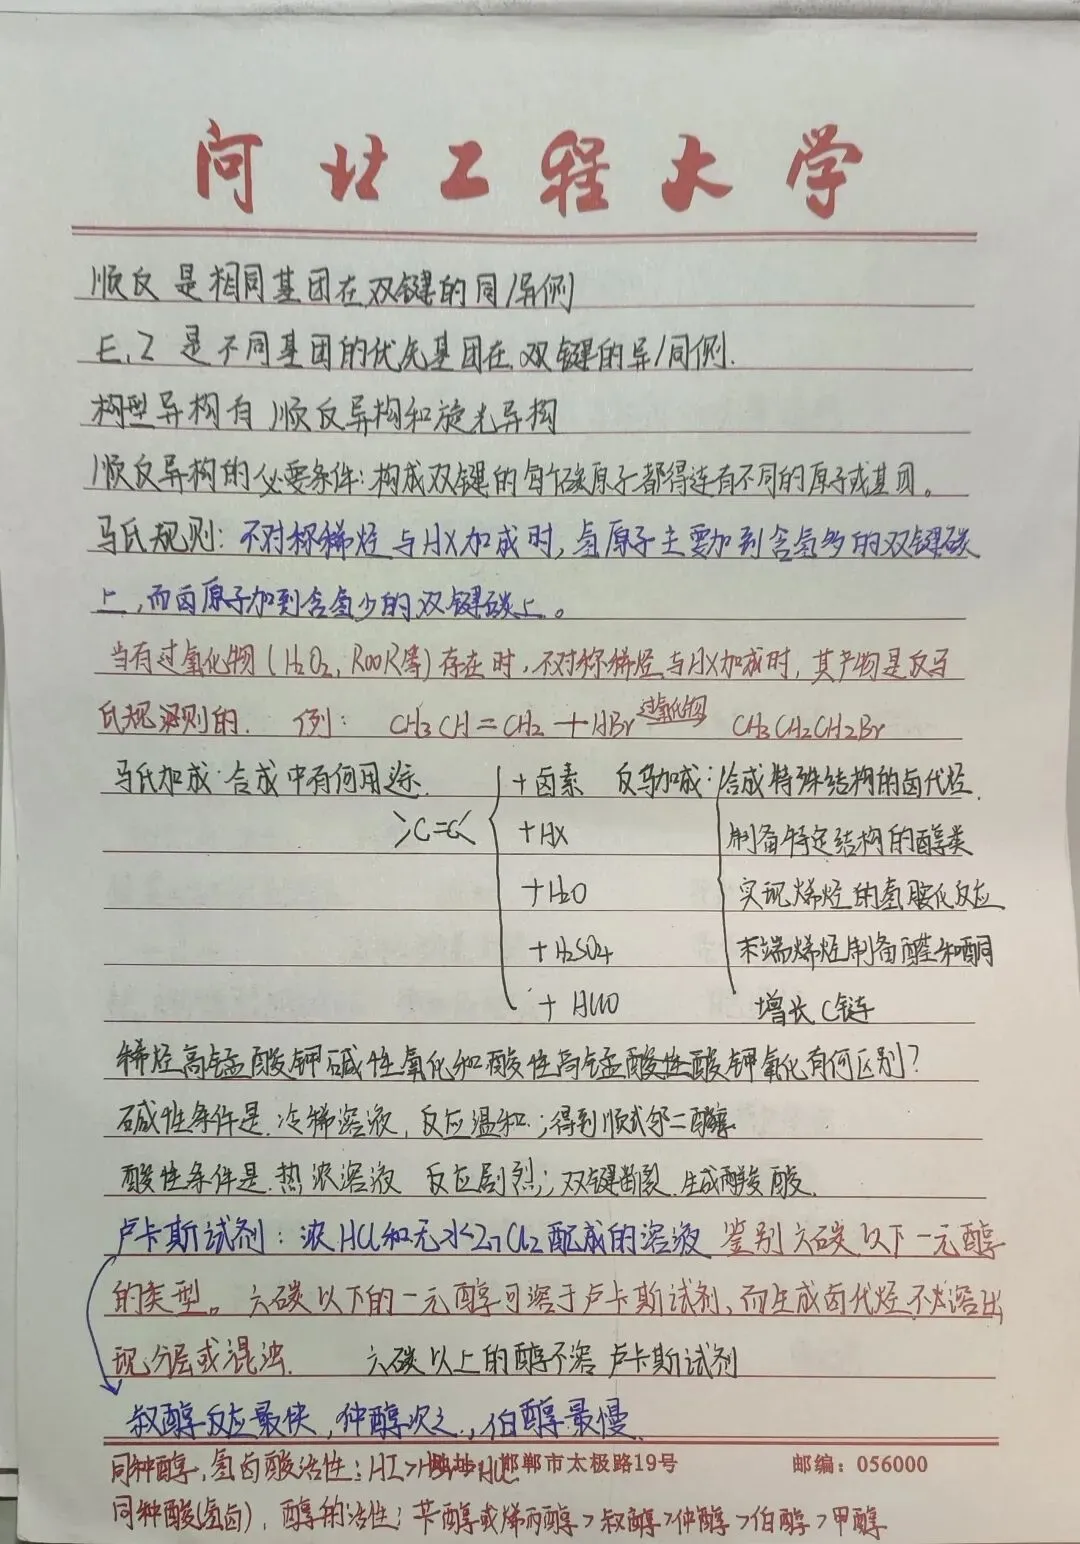 河北工程大学
顺反是相同基团在双键的同/异侧
E,Z是不同基团的优先基团在双键的异/同侧.
构型异构有顺反异构和旋光异构
顺反异构的必要条件:构成双键的每个碳原子都得连有不同的原子或基团。
马氏规则:不对称稀烃与HX加成时,氢原子主要加到含氢多的双键碳
上,而卤原子加到含氢少的双键碳上。
当有过氧化物(H2O2,ROOR等)存在时,不对称稀烃与HX加成时,其产物是反马
氏规则的. 例: CH3CH=CH2+HBr 过氧化物 CH3CH2CH2Br
马氏加成:合成中有何用途. +卤素 反马加成:合成特殊结构的卤代烃.
>C=C< +HX 制备特定结构的醇类
+H2O 实现烯烃的氢胺化反应
+H2SO4 末端烯烃制备醛和酮
+HClO 增长C链
稀烃高锰酸钾碱性氧化和酸性高锰酸性酸钾氧化有何区别?
碱性条件是冷稀溶液,反应温和;得到顺式邻二醇
酸性条件是热浓溶液 反应剧烈;双键断裂 生成酸
卢卡斯试剂:浓HCl和无水ZnCl2配成的溶液 鉴别六碳以下一元醇
的类型。六碳以下的一元醇可溶于卢卡斯试剂,而生成卤代烃不溶出
现分层或混浊. 六碳以上的醇不溶卢卡斯试剂
叔醇反应最快,仲醇次之,伯醇最慢
同种醇,氢卤酸活性:HI> 邯郸市太极路19号 邮编:056000
同种酸(氢卤),醇的活性:苄醇或烯丙醇>叔醇>仲醇>伯醇>甲醇